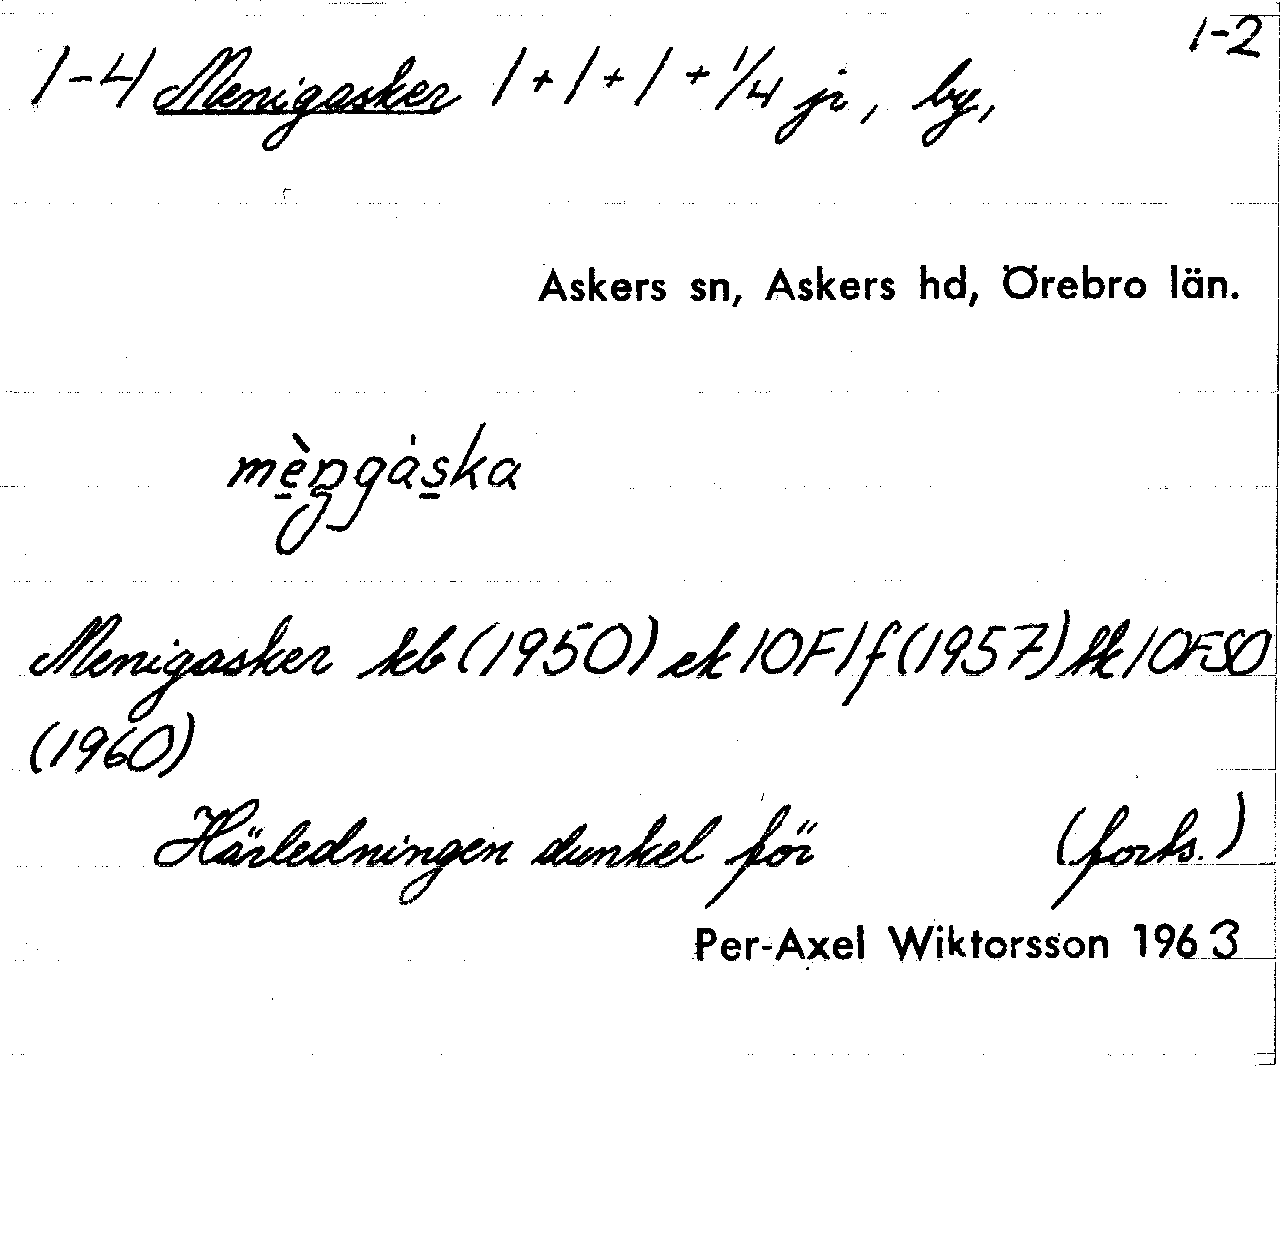 1-2
1-4 Menigasker 1 + 1 + 1 + 1/4 jr, by,
Askers sn, Askers hd, Örebro län.
mèŋgàska
Menigasker kb (1950) ek 10F1f (1957) hk 10FSO
(1960)
Härledningen dunkel för (forts.)
Per-Axel Wiktorsson 1963